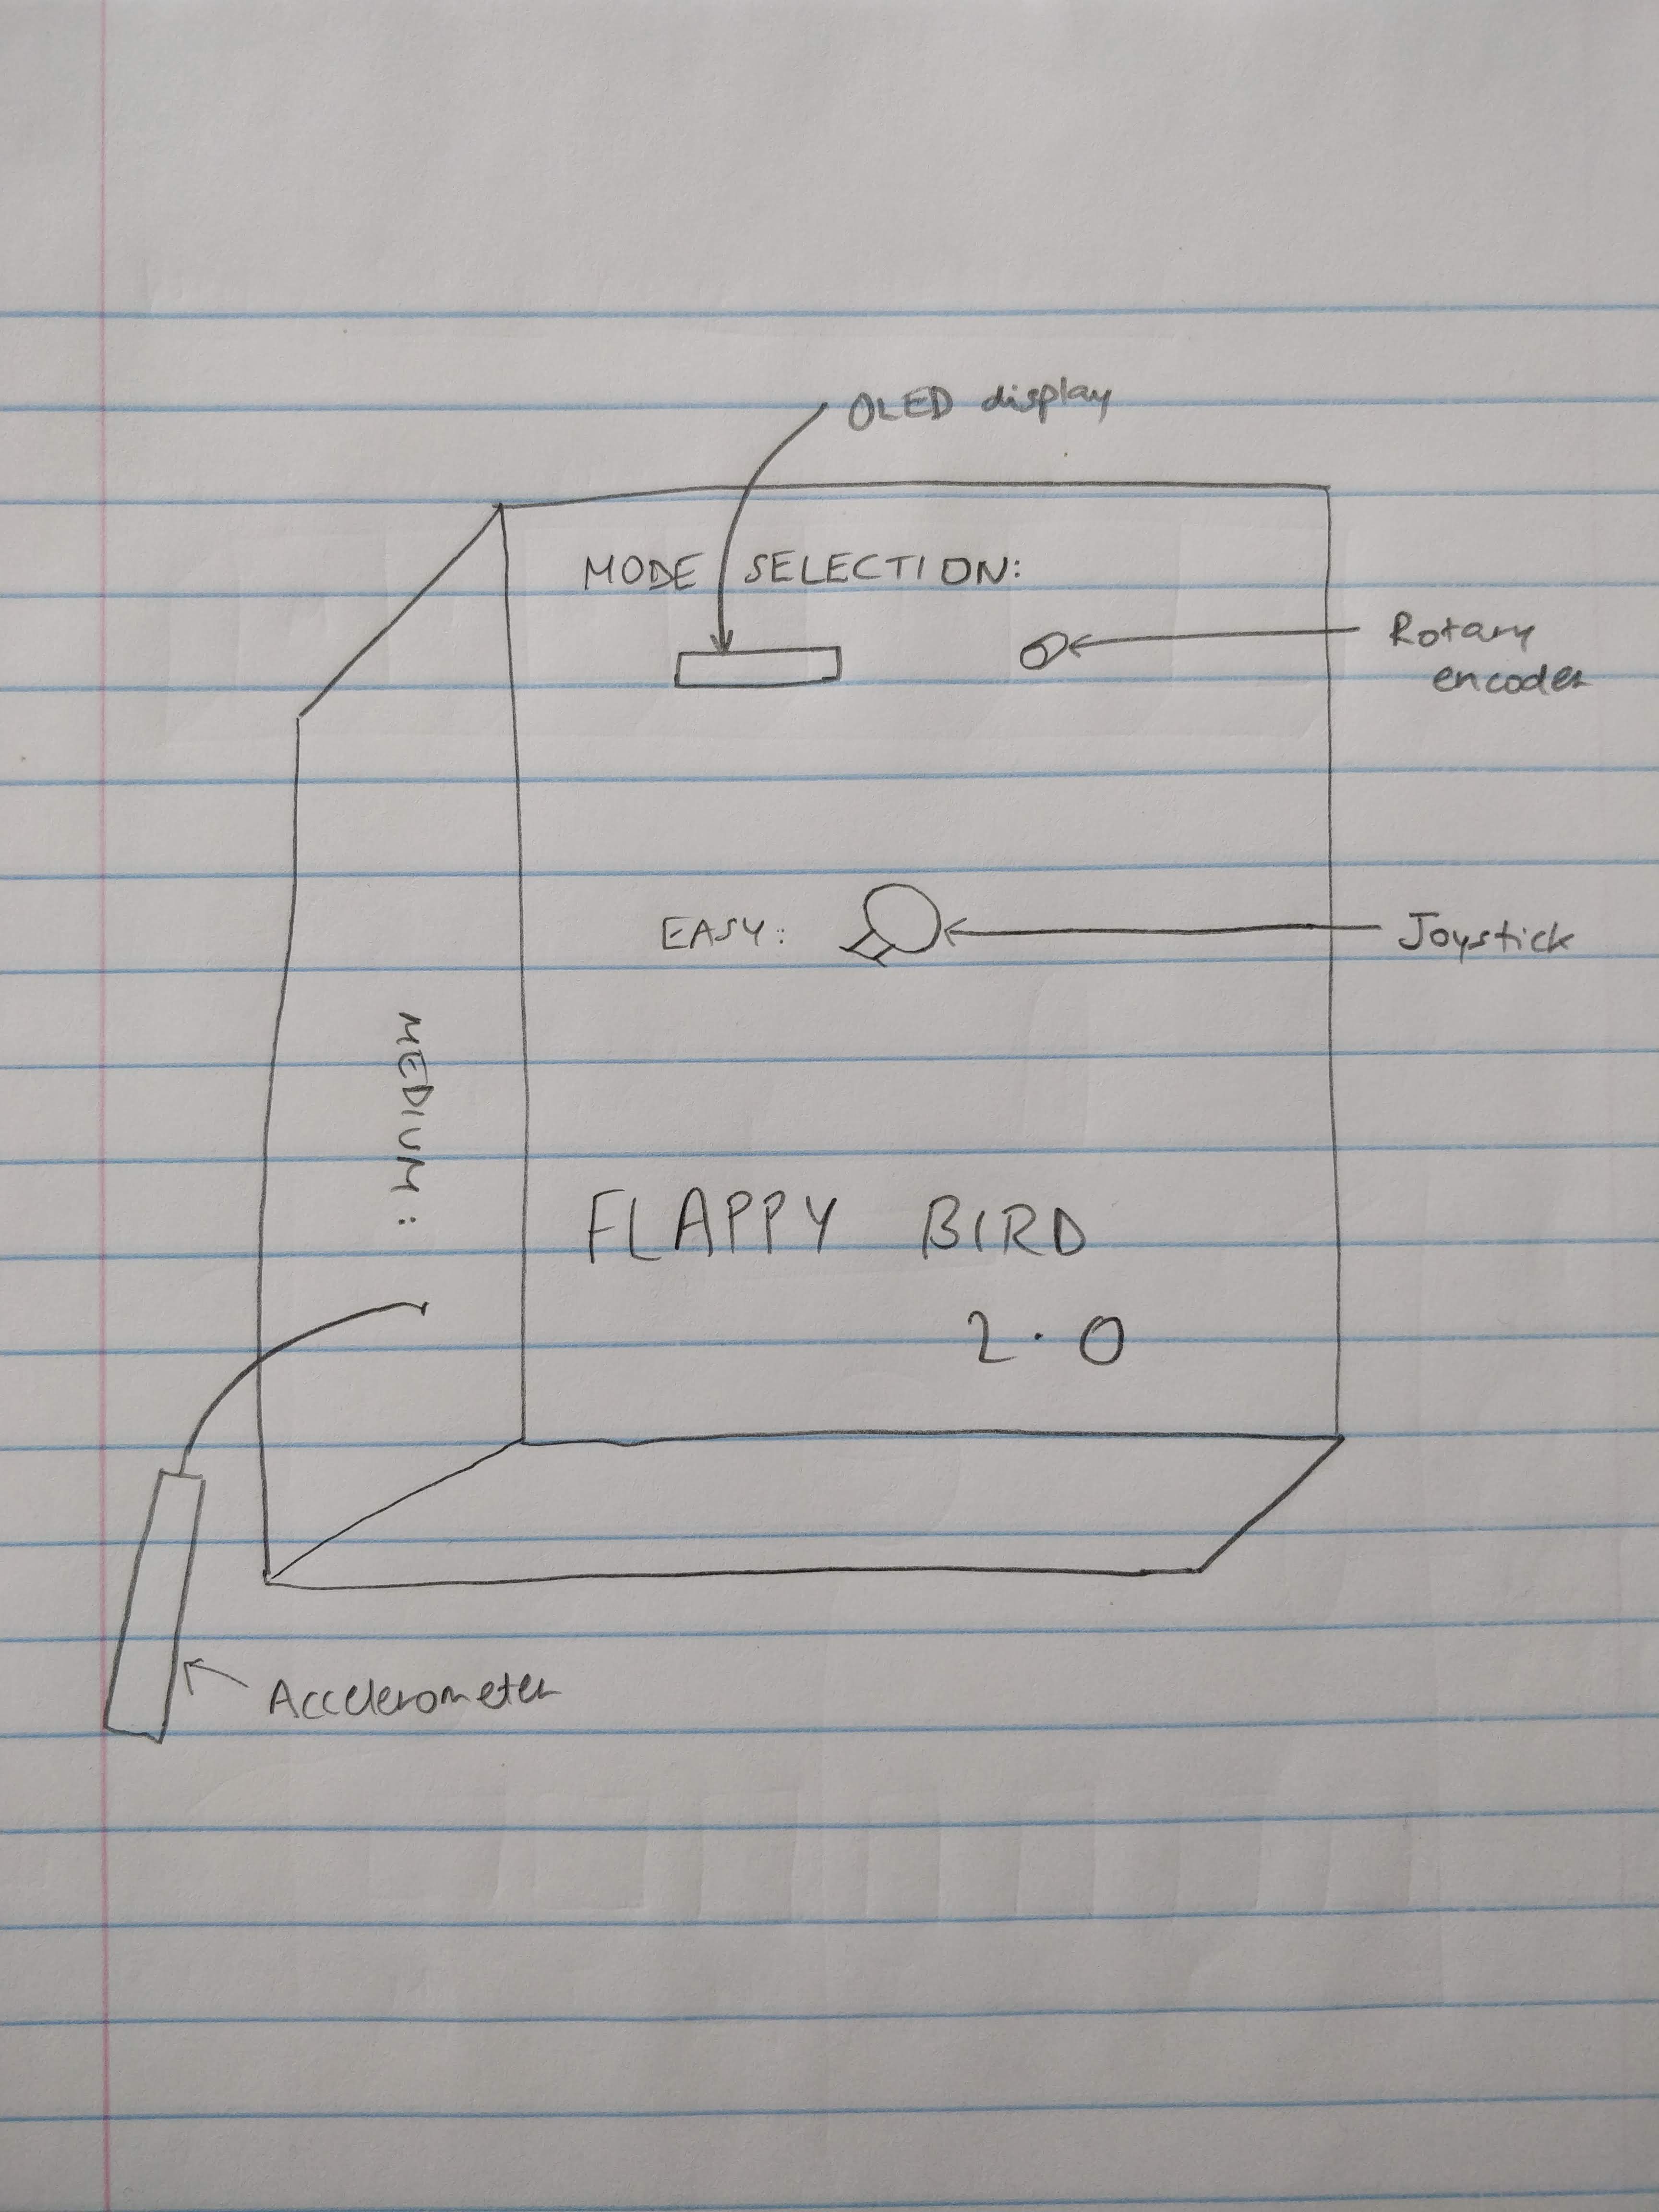 OLED display
MODE SELECTION:
Rotary
encoder
EASY:
Joystick
MEDIUM:
FLAPPY BIRD
2.0
Accelerometer